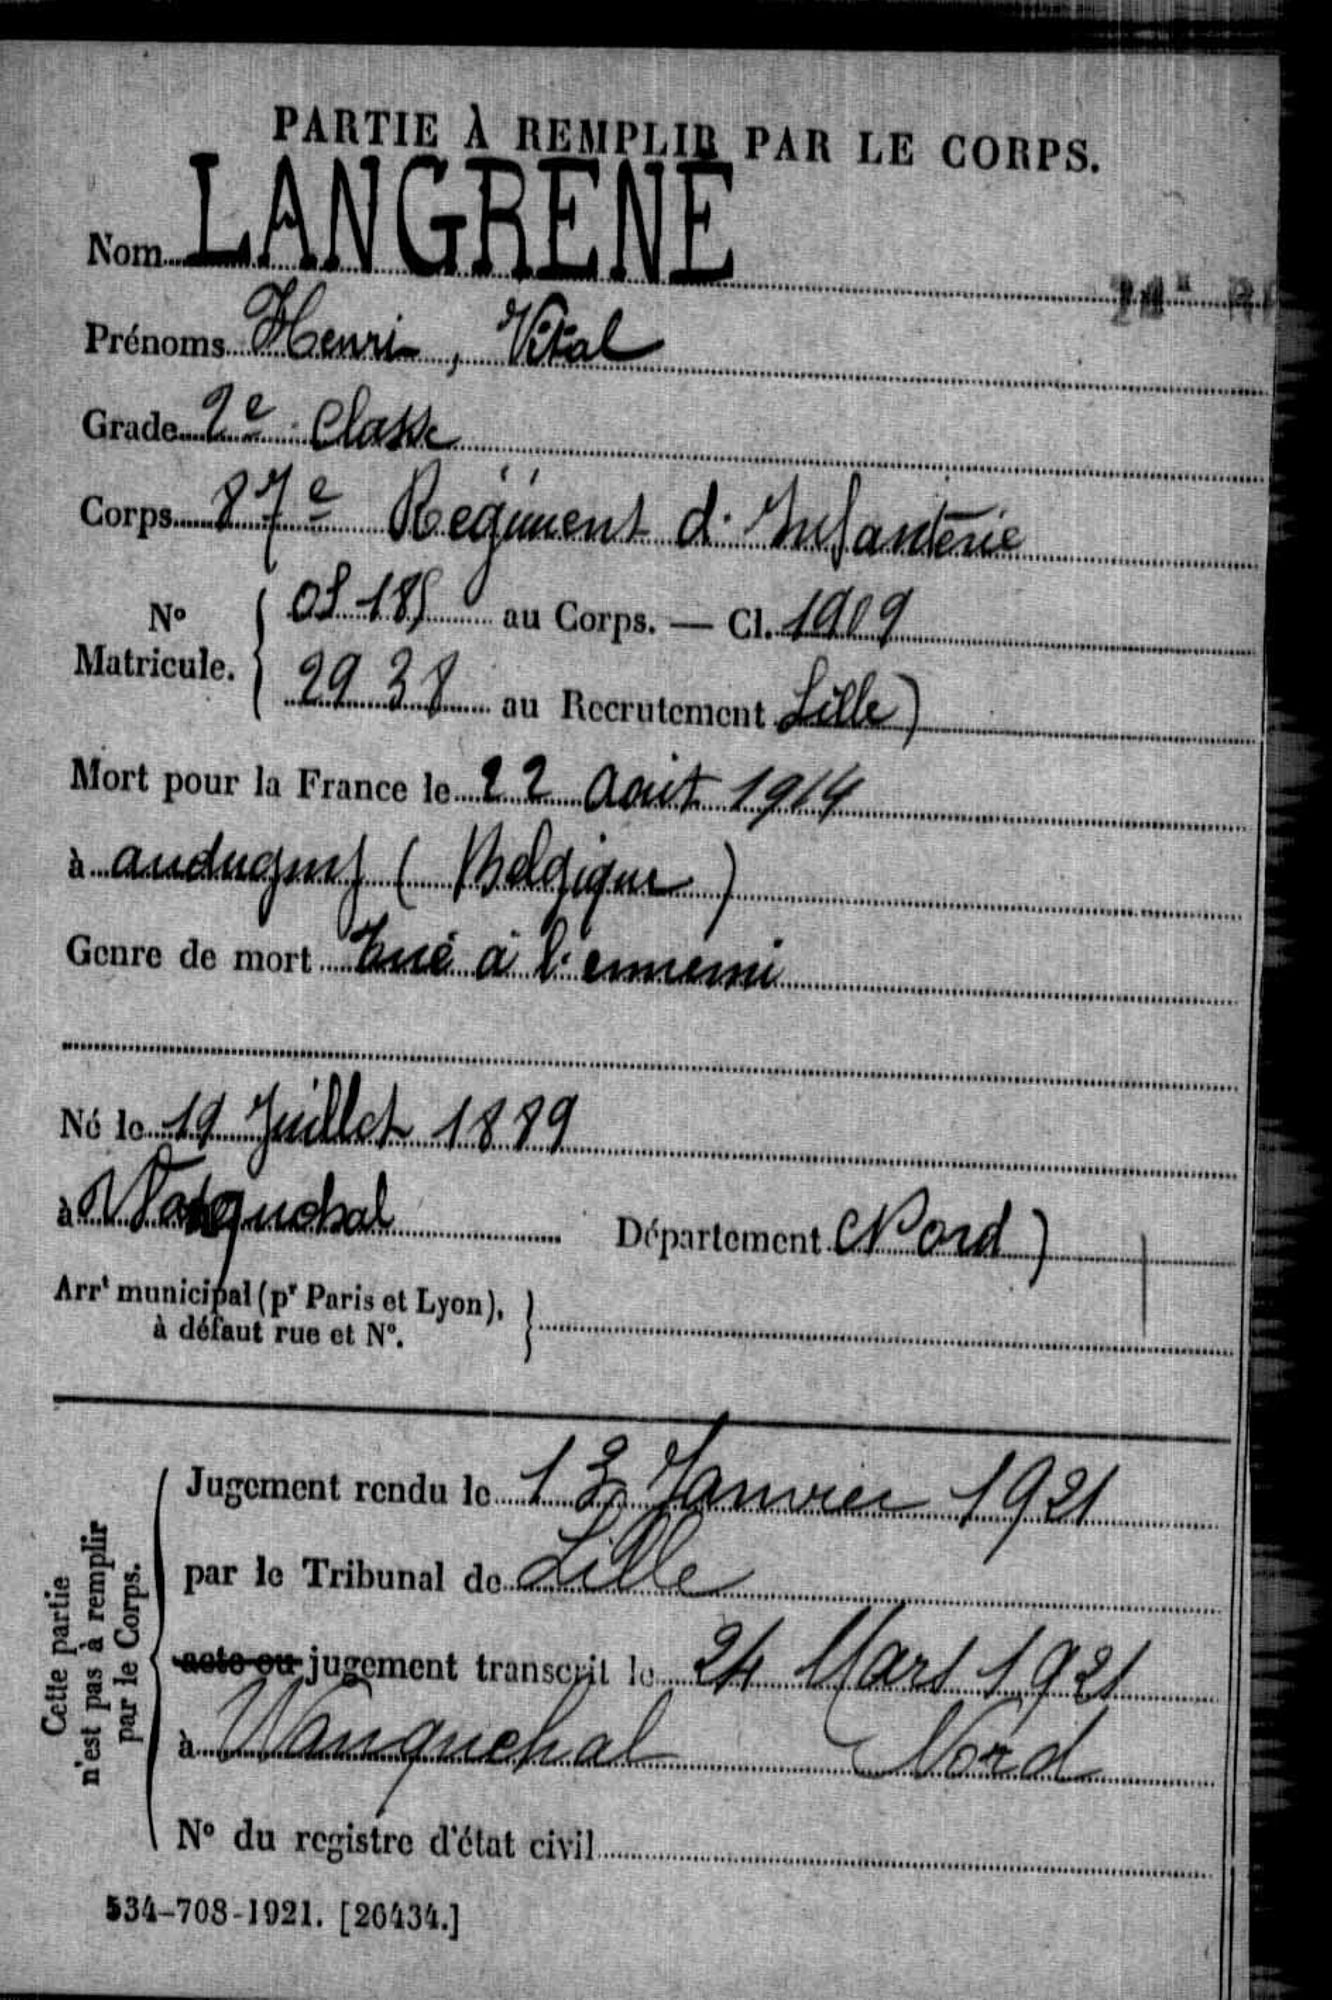 PARTIE À REMPLIR PAR LE CORPS.
Nom LANGRENE
Prénoms Henri, Vital
Grade 2e Classe
Corps 87e Régiment d'Infanterie
N° Matricule. { 0S 185 au Corps. — Cl. 1909
2938 au Recrutement Lille)
Mort pour la France le 22 Août 1914
à andugny (Belgique)
Genre de mort Tué à l'ennemi
Né le 19 Juillet 1889
à Wasquehal Département (Nord)
Arrt municipal (pr Paris et Lyon),
à défaut rue et N°. }
Cette partie
n'est pas à remplir
par le Corps.
Jugement rendu le 13 Janvier 1921
par le Tribunal de Lille
acte ou jugement transcrit le 24 Mars 1921
à Wanquehal (Nord
N° du registre d'état civil
534-708-1921. [26434.]